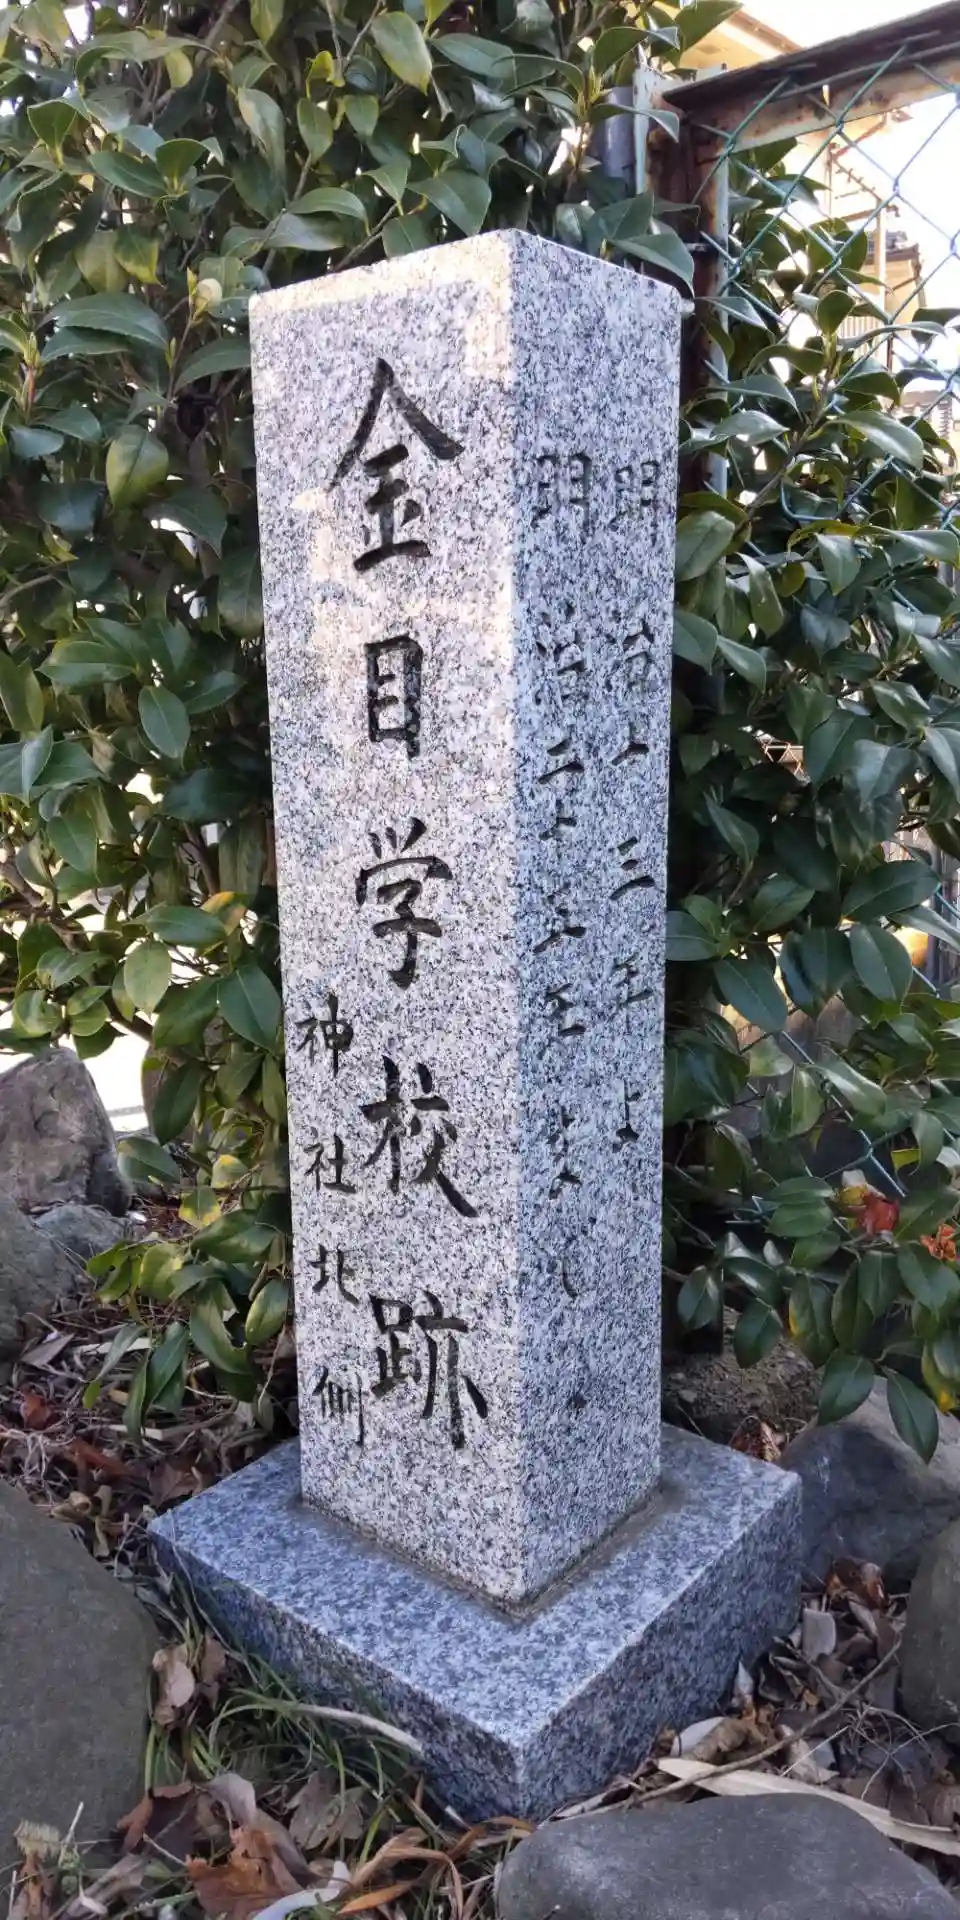 金目学校跡
神社北側
明治十三年より
明治二十五年まで